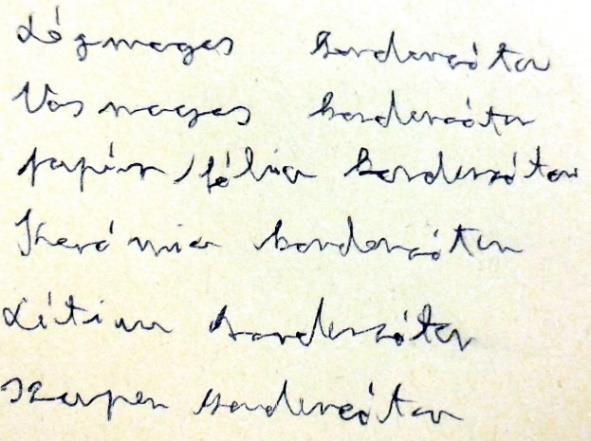 Légmagos kondenzátor
Vasmagos kondenzátor
papír/fólia kondenzátor
Kerámia kondenzátor
Lítium kondenzátor
Szuper kondenzátor